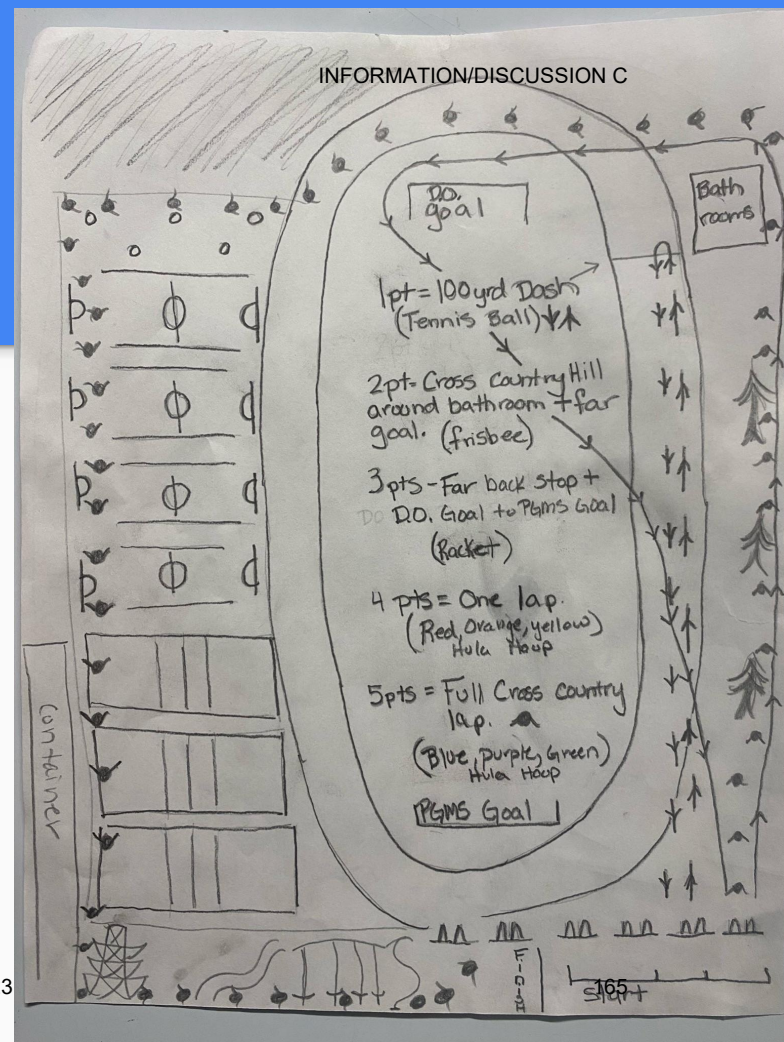 INFORMATION/DISCUSSION C
D.O.
goal
Bath
rooms
1pt = 100yrd Dash
(Tennis Ball)
2pt- Cross Country Hill
around bathroom + far
goal. (frisbee)
3pts - Far back stop +
D.O. Goal to PGMS Goal
(Racket)
4 pts = One lap.
(Red, Orange, yellow)
Hula Hoop
5pts = Full Cross Country
lap.
(Blue, purple, Green)
Hula Hoop
PGMS Goal
Container
FINISH
Start
165
3